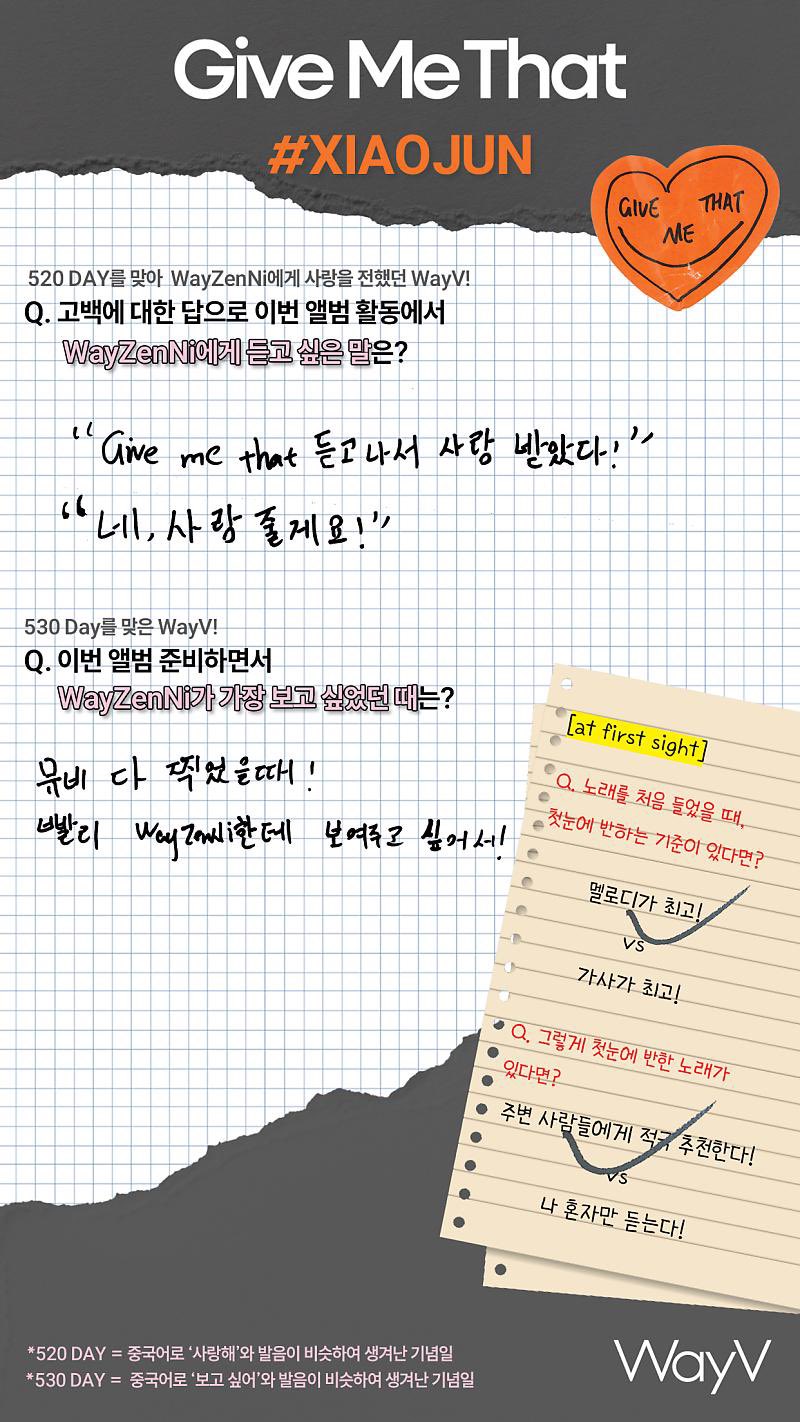 Give Me That
#XIAOJUN
GIVE THAT
ME
520 DAY를 맞아 WayZenNi에게 사랑을 전했던 WayV!
Q. 고백에 대한 답으로 이번 앨범 활동에서
WayZenNi에게 듣고 싶은 말은?
“Give me that 듣고나서 사랑 받았다!”
“네, 사랑 줄게요!”
530 Day를 맞은 WayV!
Q. 이번 앨범 준비하면서
WayZenNi가 가장 보고 싶었던 때는?
뮤비 다 찍었을때!
빨리 WayZenNi한테 보여주고 싶어서!
[at first sight]
Q. 노래를 처음 들었을 때,
첫눈에 반하는 기준이 있다면?
멜로디가 최고!
vs
가사가 최고!
Q. 그렇게 첫눈에 반한 노래가
있다면?
주변 사람들에게 적극 추천한다!
vs
나 혼자만 듣는다!
*520 DAY = 중국어로 ‘사랑해’와 발음이 비슷하여 생겨난 기념일
*530 DAY = 중국어로 ‘보고 싶어’와 발음이 비슷하여 생겨난 기념일
WayV